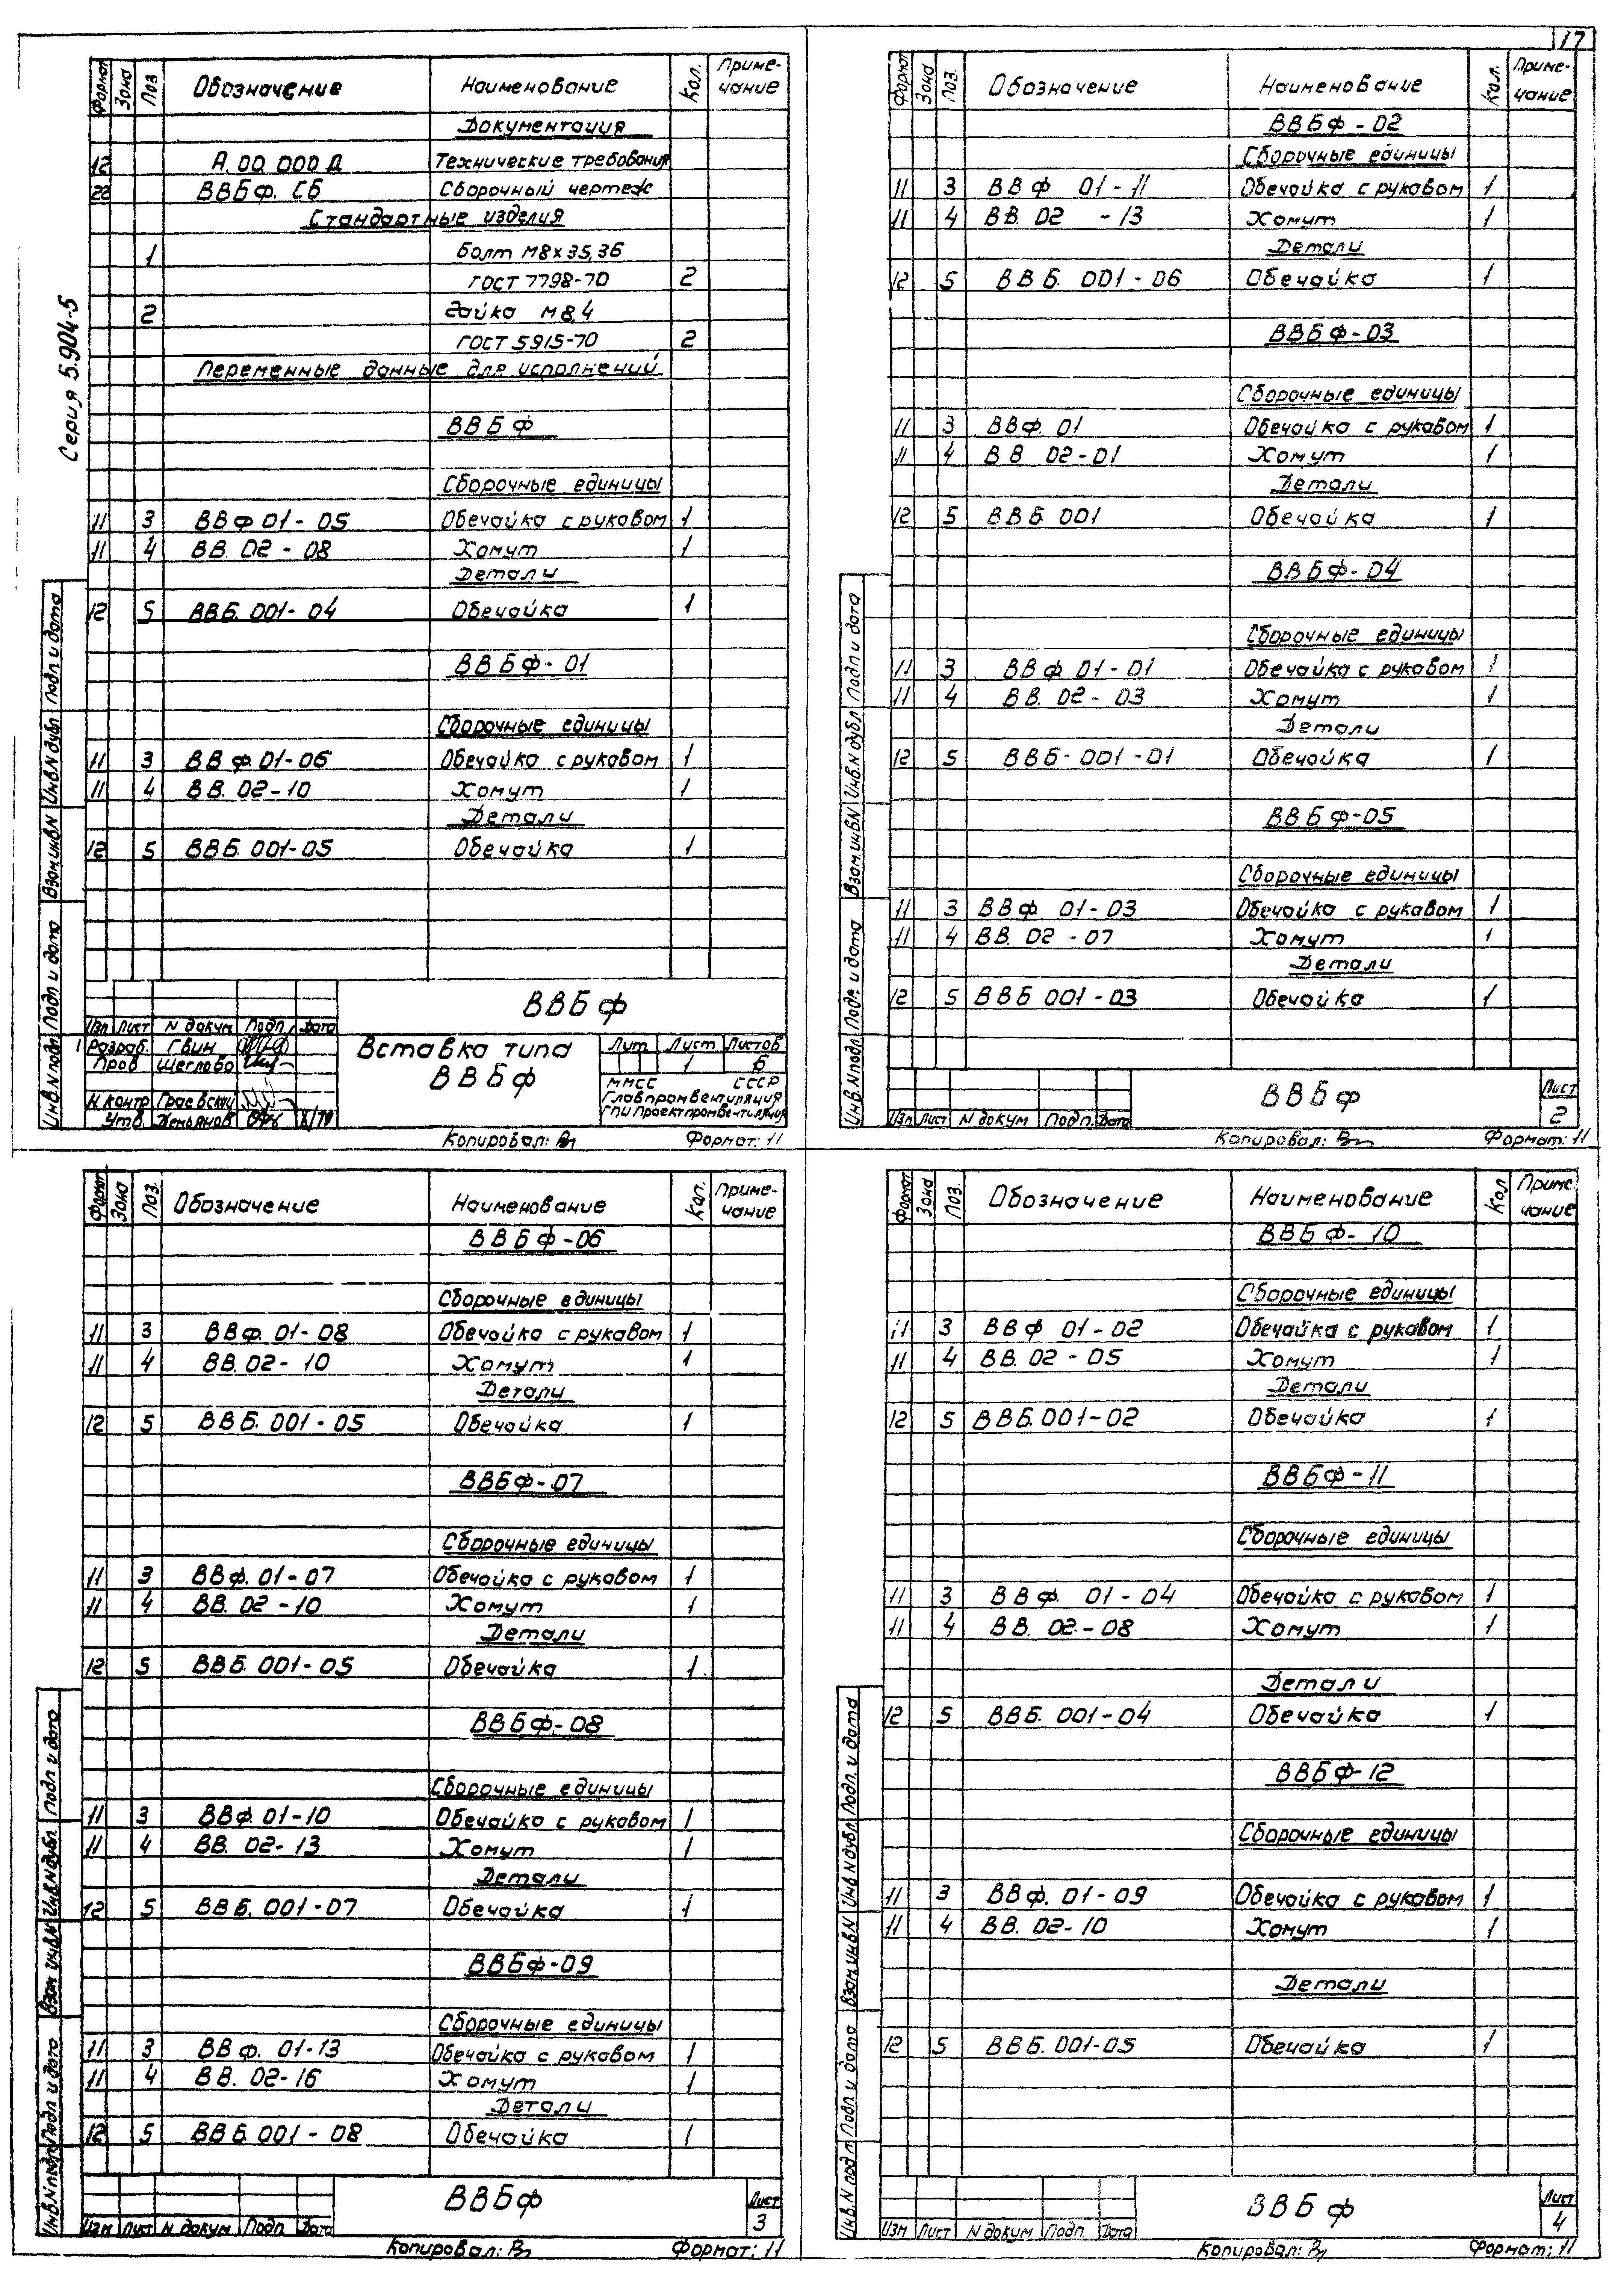 17
Серия 5.904-5
Формат Зона Поз Обозначение Наименование Кол. Приме-
чание
Документация
12 А.00.000 Д Технические требования
22 ВВБф. СБ Сборочный чертеж
Стандартные изделия
1 Болт М8х35,36
ГОСТ 7798-70 2
2 Гайка М8,4
ГОСТ 5915-70 2
Переменные данные для исполнений
ВВБф
Сборочные единицы
11 3 ВВф 01-05 Обечайка с рукавом 1
11 4 ВВ. 02-08 Хомут 1
Детали
12 5 ВВБ. 001-04 Обечайка 1
ВВБф-01
Сборочные единицы
11 3 ВВф.01-06 Обечайка с рукавом 1
11 4 ВВ. 02-10 Хомут 1
Детали
12 5 ВВБ. 001-05 Обечайка 1
Инв.N подл Подп и дата Взам.инв N Инв.N дубл Подп и дата
Изм Лист N докум Подп. Дата
Разраб. Гвин
Пров Щеглова
Н.контр Граевский
Утв.
ВВБф
Вставка типа
ВВБф
Лит Лист Листов
1 6
ММСС СССР
Главпромвентиляция
ГПИ Проектпромвентиляция
Копировал: Формат: 11
Формат Зона Поз. Обозначение Наименование Кол. Приме-
чание
ВВБф-02
Сборочные единицы
11 3 ВВф 01-11 Обечайка с рукавом 1
11 4 ВВ. 02 -13 Хомут 1
Детали
12 5 ВВБ. 001-06 Обечайка 1
ВВБф-03
Сборочные единицы
11 3 ВВф. 01 Обечайка с рукавом 1
11 4 ВВ 02-01 Хомут 1
Детали
12 5 ВВБ 001 Обечайка 1
ВВБф-04
Сборочные единицы
11 3 ВВф 01-01 Обечайка с рукавом 1
11 4 ВВ. 02-03 Хомут 1
Детали
12 5 ВВБ-001-01 Обечайка 1
ВВБф-05
Сборочные единицы
11 3 ВВф 01-03 Обечайка с рукавом 1
11 4 ВВ. 02-07 Хомут 1
Детали
12 5 ВВБ 001-03 Обечайка 1
Инв.N подл Подп. и дата Взам.инв N Инв.N дубл Подп и дата
Изм Лист N докум Подп. Дата
ВВБф
Лист
2
Копировал: Формат: 11
Формат Зона Поз. Обозначение Наименование Кол. Приме-
чание
ВВБф-06
Сборочные единицы
11 3 ВВф. 01-08 Обечайка с рукавом 1
11 4 ВВ. 02-10 Хомут 1
Детали
12 5 ВВБ. 001-05 Обечайка 1
ВВБф-07
Сборочные единицы
11 3 ВВф. 01-07 Обечайка с рукавом 1
11 4 ВВ. 02-10 Хомут 1
Детали
12 5 ВВБ. 001-05 Обечайка 1
ВВБф-08
Сборочные единицы
11 3 ВВф 01-10 Обечайка с рукавом 1
11 4 ВВ. 02-13 Хомут 1
Детали
12 5 ВВБ. 001-07 Обечайка 1
ВВБф-09
Сборочные единицы
11 3 ВВф. 01-13 Обечайка с рукавом 1
11 4 ВВ. 02-16 Хомут 1
Детали
12 5 ВВБ 001-08 Обечайка 1
Инв.N подл Подп и дата Взам инв N Инв N дубл. Подп и дата
Изм Лист N докум Подп Дата
ВВБф
Лист
3
Копировал: Формат: 11
Формат Зона Поз. Обозначение Наименование Кол Приме
чание
ВВБф-10
Сборочные единицы
11 3 ВВф 01-02 Обечайка с рукавом 1
11 4 ВВ. 02-05 Хомут 1
Детали
12 5 ВВБ.001-02 Обечайка 1
ВВБф-11
Сборочные единицы
11 3 ВВф. 01-04 Обечайка с рукавом 1
11 4 ВВ. 02-08 Хомут 1
Детали
12 5 ВВБ. 001-04 Обечайка 1
ВВБф-12
Сборочные единицы
11 3 ВВф. 01-09 Обечайка с рукавом 1
11 4 ВВ. 02-10 Хомут 1
Детали
12 5 ВВБ. 001-05 Обечайка 1
Инв.N подл Подп и дата Взам инв N Инв N дубл Подп. и дата
Изм Лист N докум Подп Дата
ВВБф
Лист
4
Копировал: Формат: 11